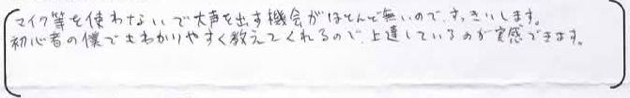 マイク等を使わないで大声を出す機会がほとんど無いので、すっきりします。
初心者の僕でもわかりやすく教えてくれるので、上達しているのが実感できます。